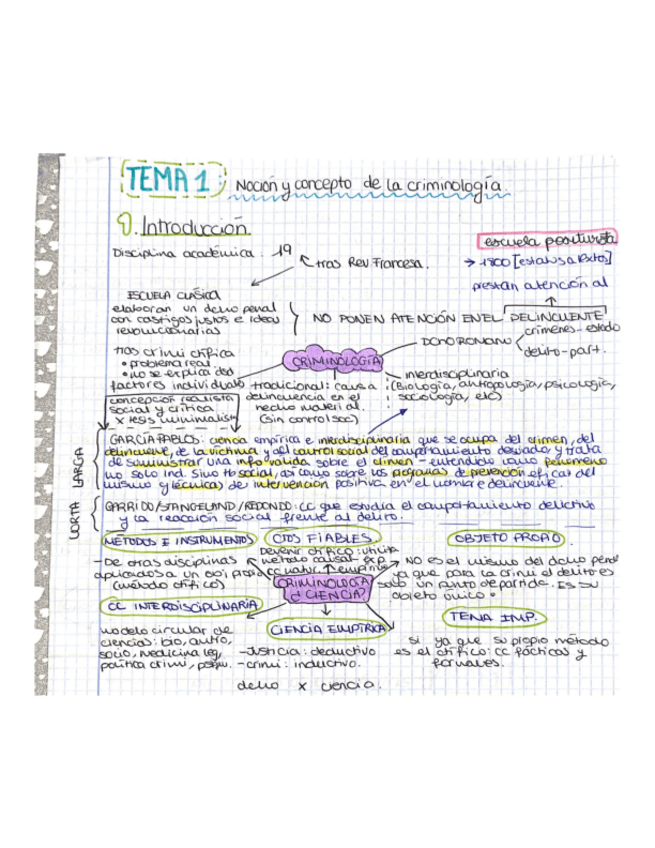 TEMA 1: Noción y concepto de la criminología.
1. Introducción
escuela positivista
Disciplina académica: 19
tras Rev Francesa.
→ 1800
prestan atención al
ESCUELA CLÁSICA
elaboran un dcho penal
con castigos justos e ideas
revolucionarias
NO PONEN ATENCIÓN EN EL DELINCUENTE
DCHO ROMANO
crímenes - estado
delito - part.
tras crimi ctífica
• problema real
• no se explica del
factores individuales
CRIMINOLOGÍA
interdisciplinaria
(Biología, antropología, psicología,
sociología, etc)
tradicional: causa
delincuencia en el
hecho material.
(sin control soc)
concepción realista
social y crítica
x tesis minimalista
LARGA
GARCÍA PABLOS: ciencia empírica e interdisciplinaria que se ocupa del crimen, del
delincuente, de la víctima y del control social del comportamiento desviado y trata
de suministrar una info válida sobre el crimen - entendido como fenómeno
no solo ind. sino tb social, así como sobre los programas de prevención eficaz del
mismo y técnicas de intervención positiva en el hombre delincuente.
CORTA
GARRIDO/STANGELAND/REDONDO: CC que estudia el comportamiento delictivo
y la reacción social frente al delito.
MÉTODOS E INSTRUMENTOS
CTOS FIABLES
OBJETO PROPIO
- De otras disciplinas
aplicados a un obj propio
(método ctífico)
Devenir ctífico: utiliza
método causal-exp
cc natur. empírico
CRIMINOLOGÍA
¿CIENCIA?
NO es el mismo del dcho penal
ya que para la crimi el delito es
solo un punto de partida. Es su
objeto único.
CC INTERDISCIPLINARIA
modelo circular de
ciencias: bio, antro,
socio, medicina leg,
política crimi, psiqu.
CIENCIA EMPÍRICA
- Justicia: deductivo
- crimi: inductivo.
dcho x ciencia.
TEMA IMP.
Si ya que su propio método
es el ctífico: cc fácticas y
formales.